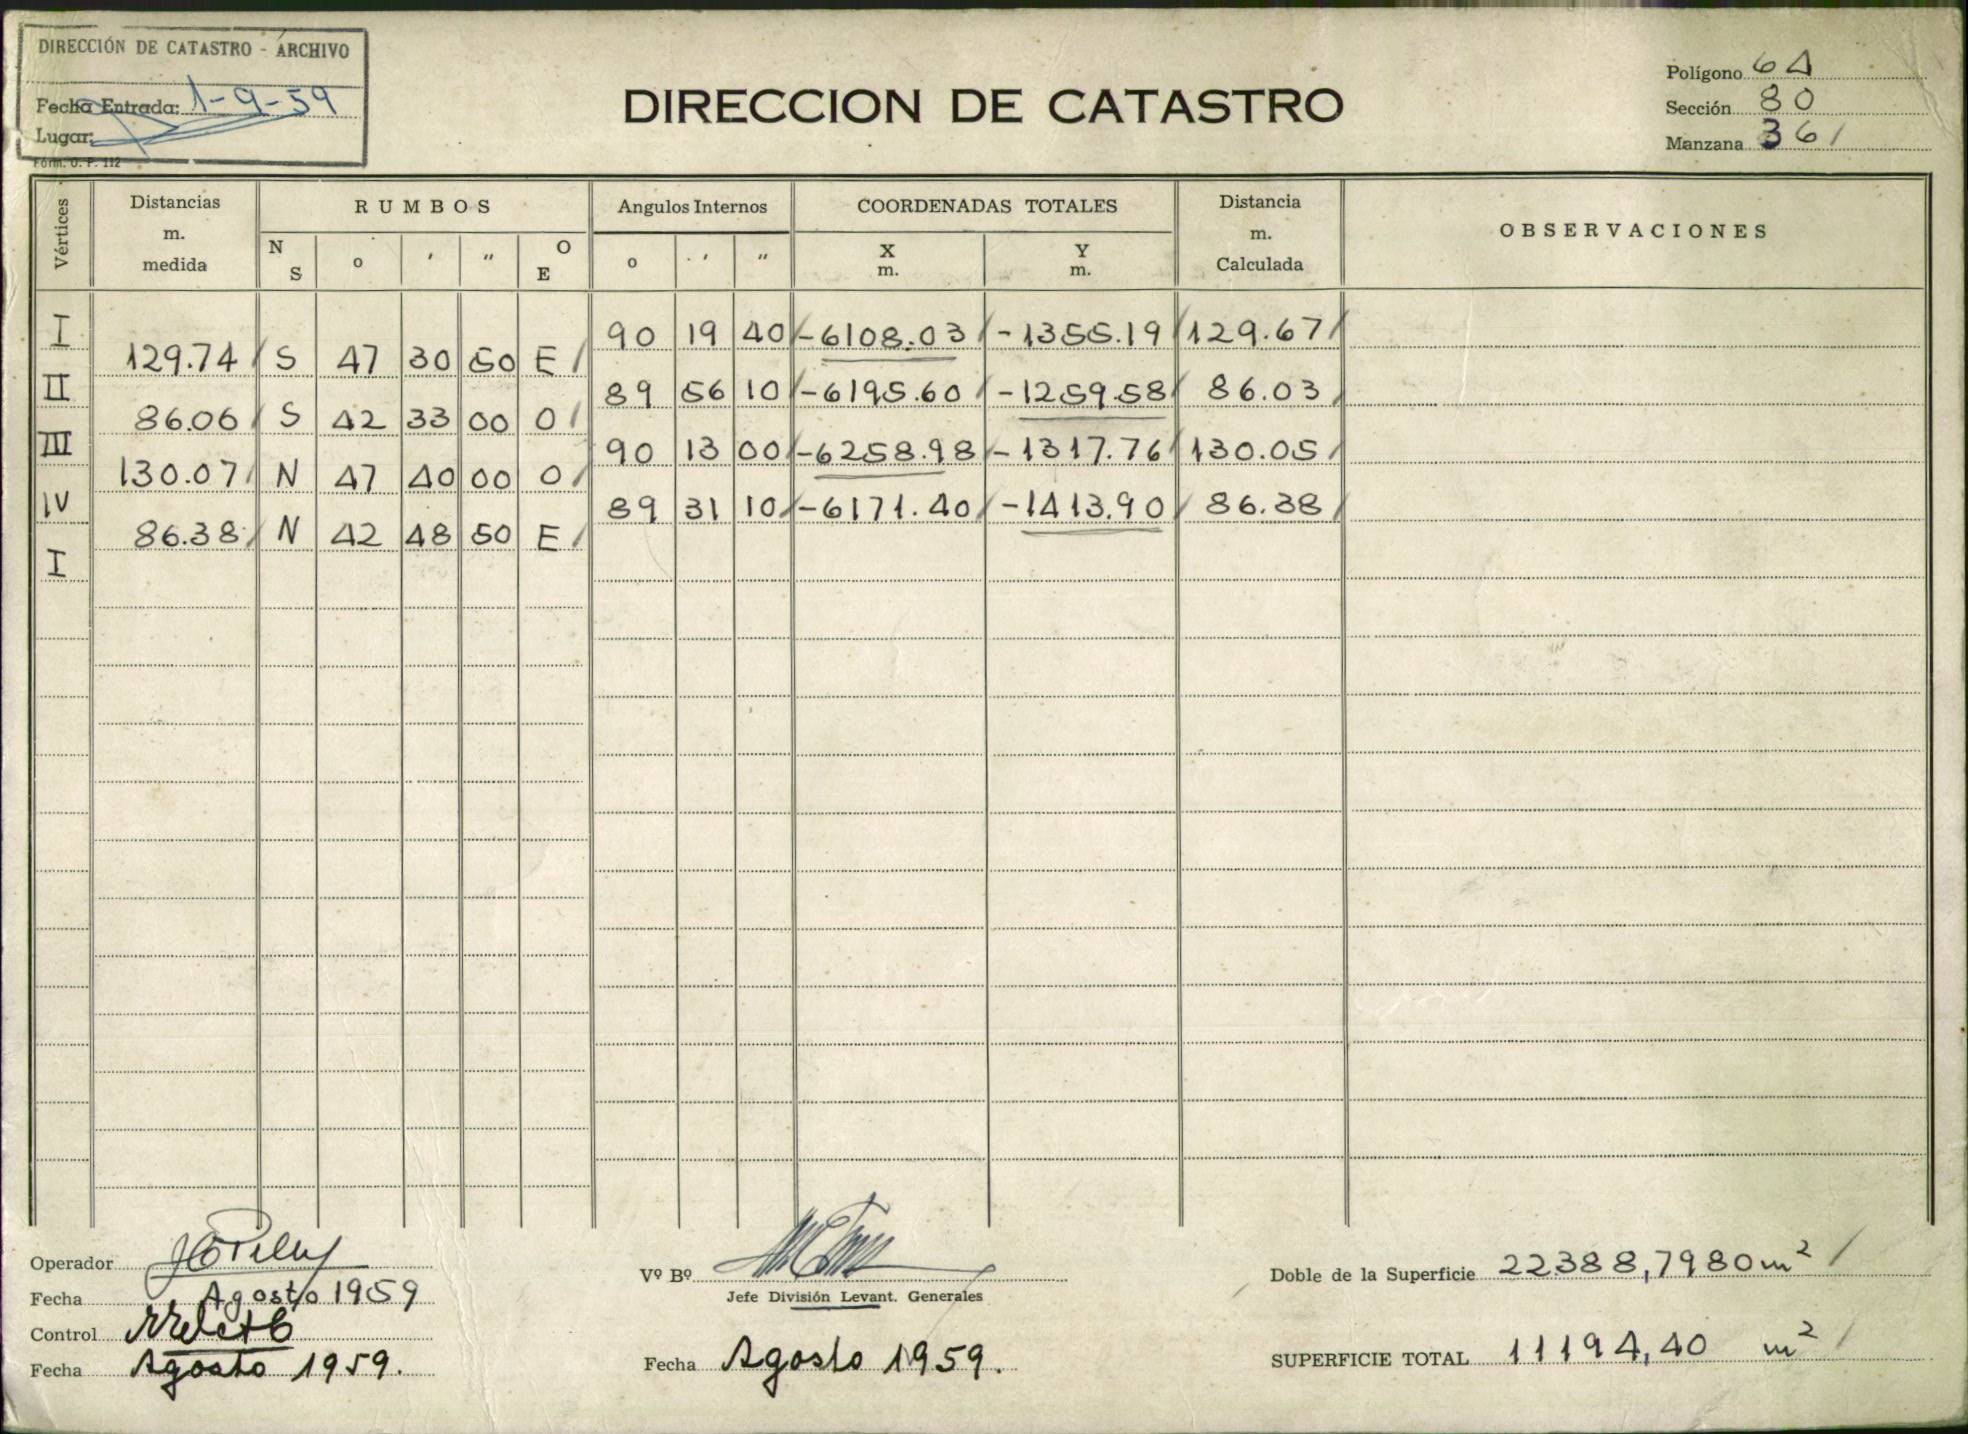 DIRECCIÓN DE CATASTRO - ARCHIVO
Fecha Entrada: 1-9-59
Lugar:
Fórm. O. P. 112
DIRECCION DE CATASTRO
Polígono 64
Sección 80
Manzana 361
Vértices
Distancias m. medida
RUMBOS
N S o ' " O E
Angulos Internos
o ' "
COORDENADAS TOTALES
X m. Y m.
Distancia m. Calculada
OBSERVACIONES
I 90 19 40 -6108.03 -1355.19 129.67
129.74 S 47 30 50 E
II 89 56 10 -6195.60 -1259.58 86.03
86.06 S 42 33 00 O
III 90 13 00 -6258.98 -1317.76 130.05
130.07 N 47 40 00 O
IV 89 31 10 -6171.40 -1413.90 86.38
86.38 N 42 48 50 E
I
Operador
Fecha Agosto 1959
Control
Fecha Agosto 1959.
Vº Bº
Jefe División Levant. Generales
Fecha Agosto 1959.
Doble de la Superficie 22388,7980 m²
SUPERFICIE TOTAL 11194,40 m²